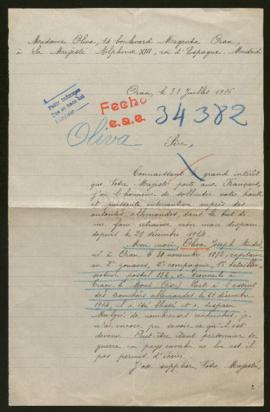 Madame Oliva, 14 boulevard Magenta Oran,
à Sa Majesté Alphonse XIII, roi d'Espagne. Madrid
Oran, le 31 Juillet 1915
Fecho
e.a.e.
34382
Oliva
Sire,
Connaissant grand intérêt
que Votre Majesté porte aux Français,
j'ai l'honneur de solliciter votre haute
et puissante intervention auprès des
autorités allemandes, dans le but de
me faire retrouver mon mari disparu
depuis le 21 décembre 1914.
Mon mari, Oliva Joseph
né à Oran le 30 novembre 1872, capitaine
au 2e zouaves, 2e compagnie,
secteur postal 124,
Oran
des tranchées allemandes le 21 décembre
1914, il a été blessé et a disparu
Malgré de nombreuses recherches, je
n'ai encore pu savoir ce qu'il est
devenu. Peut-être étant prisonnier de
guerre en pays envahi ne lui est il
pas permis d'écrire.
J'ose supplier Votre Majesté,